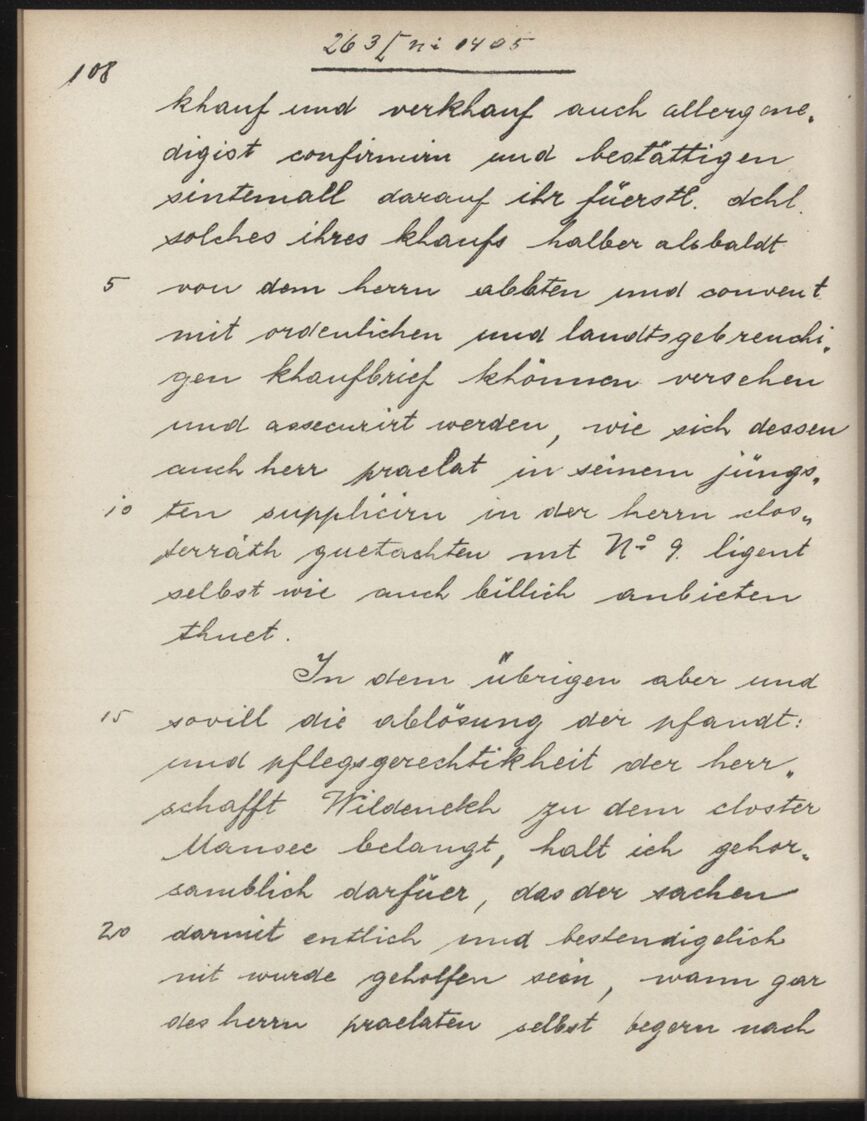 263/[ Ni 1405
108
khauf und verkhauf auch allergene„
digist confirmirn und bestättigen
sintemall darauf ihr füerstl. dchl.
solches ihres khaufs halber alsbaldt
5 von dem herrn abbten und convent
mit ordenlichen und landtsgebreuchi„
gen khaufbrief khönnen versehen
und assecurirt werden, wie sich dessen
auch herr praelat in seinem jüngs„
10 ten supplicirn in der herrn clos„
terräth guetachten mt No 9. ligent
selbst wie auch billich anbieten
thuet.
In dem übrigen aber und
15 sovill die ablösung der pfandt:
und pflegsgerechtikheit der herr„
schafft Wildenekh zu dem closter
Mansee belangt, halt ich gehor„
samblich darfüer, das der sachen
20 darmit entlich und bestendigelich
nit wurde geholfen sein, wann gar
des herrn praelaten selbst begern nach